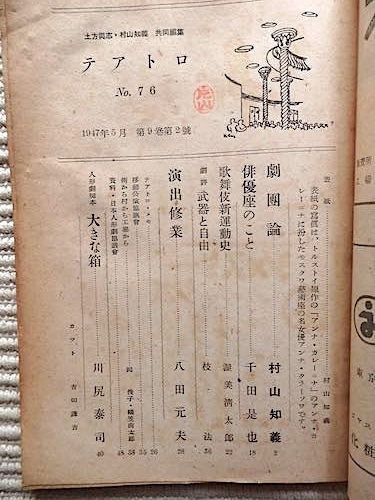 土方與志・村山知義 共同編集
テアトロ
No. 76
1947年5月 第9巻第2號
表紙 村山知義
表紙の寫眞は、トルストイ原作の「アンナ・カレーニナ」のアンナ・カ
レーニナに扮したモスクワ藝術座の名女優アンナ・タラーソワです。
劇團論 村山知義 2
俳優座のこと 千田是也 18
歌舞伎新運動史 渥美清太郎 22
劇評 武器と自由 枝 法 36
演出修業 八田元夫 28
テアトロ・メモ 26
移動公演協議會 35
街から村から工場から
資料・日本人形劇協議會 38
人形劇脚本 大きな箱 川尻泰司 40
カット 吉田謙吉
東京
化粧